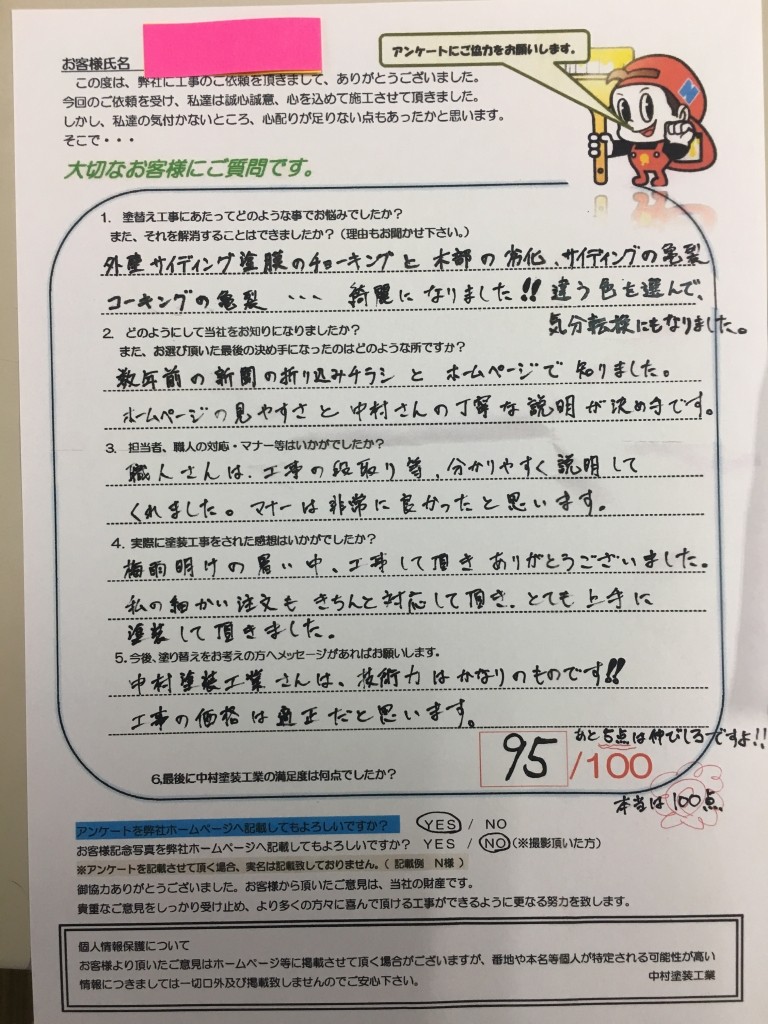 アンケートにご協力をお願いします。
お客様氏名
この度は、弊社に工事のご依頼を頂きまして、ありがとうございました。
今回のご依頼を受け、私達は誠心誠意、心を込めて施工させて頂きました。
しかし、私達の気付かないところ、心配りが足りない点もあったかと思います。
そこで・・・
N
大切なお客様にご質問です。
1. 塗替え工事にあたってどのような事でお悩みでしたか？
また、それを解消することはできましたか？（理由もお聞かせ下さい。）
外壁サイディング塗膜のチョーキングと木部の劣化、サイディングの亀裂
コーキングの亀裂 ・・・ 綺麗になりました!! 違う色を選んで、
気分転換にもなりました。
2. どのようにして当社をお知りになりましたか？
また、お選び頂いた最後の決め手になったのはどのような所ですか？
数年前の新聞の折り込みチラシとホームページで知りました。
ホームページの見やすさと中村さんの丁寧な説明が決め手です。
3. 担当者、職人の対応・マナー等はいかがでしたか？
職人さんは、工事の段取り等、分かりやすく説明して
くれました。マナーは非常に良かったと思います。
4. 実際に塗装工事をされた感想はいかがでしたか？
梅雨明けの暑い中、工事して頂きありがとうございました。
私の細かい注文もきちんと対応して頂き、とても上手に
塗装して頂きました。
5. 今後、塗り替えをお考えの方へメッセージがあればお願いします。
中村塗装工業さんは、技術力はかなりのものです!!
工事の価格は適正だと思います。
あと5点は伸びしろですよ!!
6.最後に中村塗装工業の満足度は何点でしたか？ 95/100
本当は100点
アンケートを弊社ホームページへ記載してもよろしいですか？ YES / NO
お客様記念写真を弊社ホームページへ記載してもよろしいですか？ YES / NO（※撮影頂いた方）
※アンケートを記載させて頂く場合、実名は記載致しておりません。（ 記載例 N様 ）
御協力ありがとうございました。お客様から頂いたご意見は、当社の財産です。
貴重なご意見をしっかり受け止め、より多くの方々に喜んで頂ける工事ができるように更なる努力を致します。
個人情報保護について
お客様より頂いたご意見はホームページ等に掲載させて頂く場合がございますが、番地や本名等個人が特定される可能性が高い
情報につきましては一切口外及び掲載致しませんのでご安心下さい。 中村塗装工業